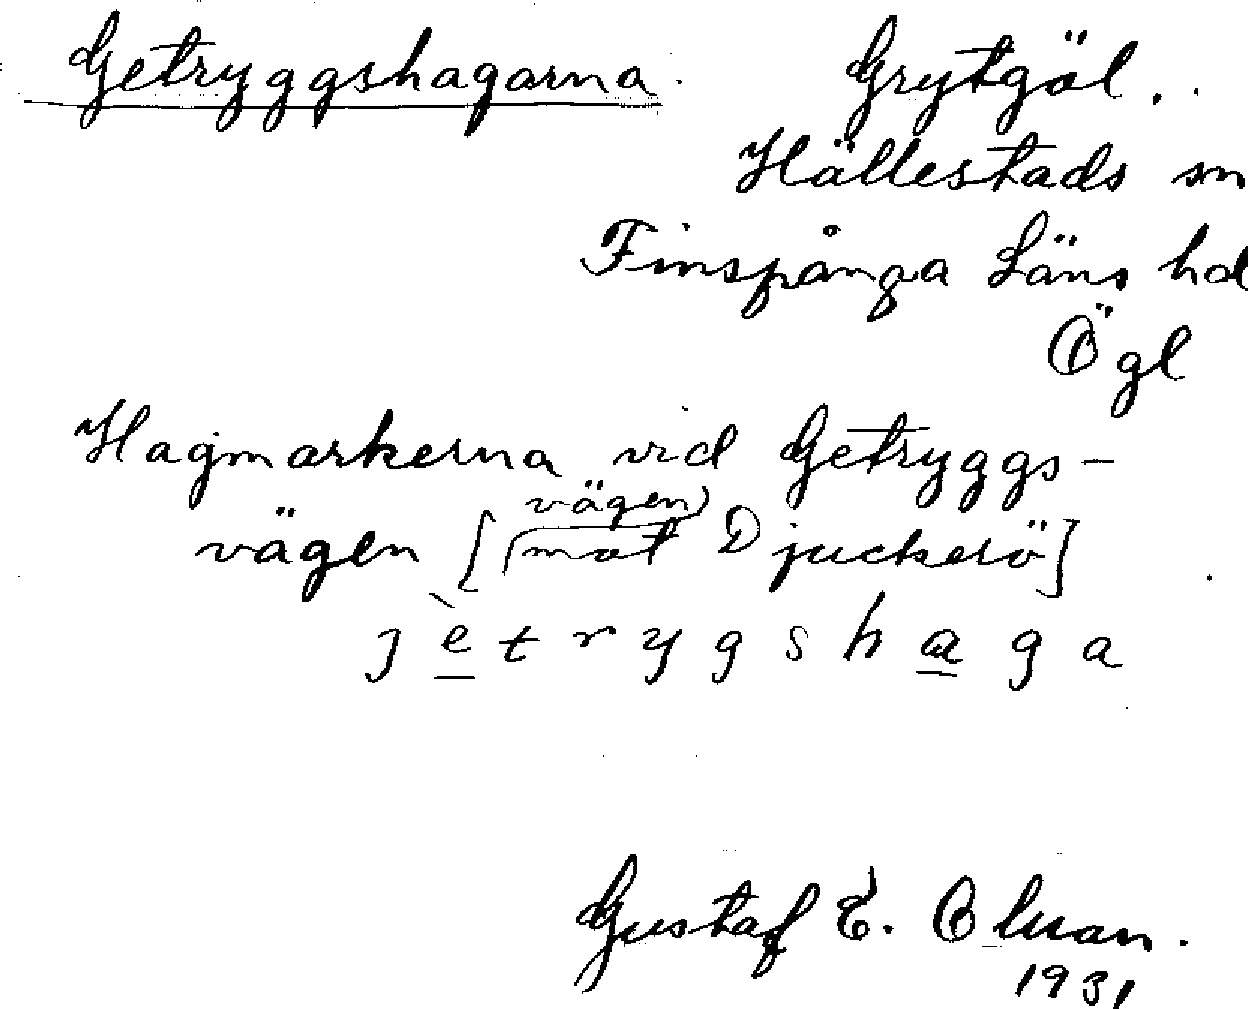 Getryggshagarna. Grytgöl.
Hällestads sn
Finspånga Läns hd
Ögl
Hagmarkerna vid Getryggs-
vägen [vägen mot Djuckerö]
j è t r y g s h a g a
Gustaf E.
1931